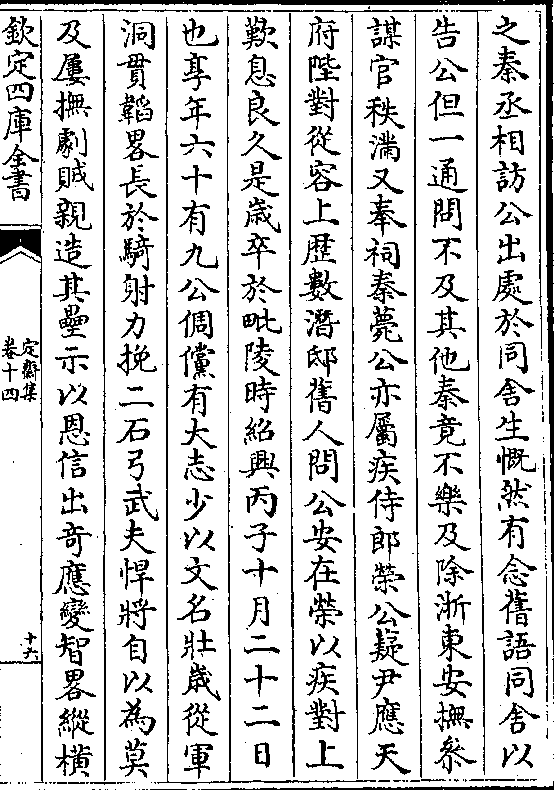 之秦丞相訪公出處於同舍生慨然有念舊語同舍以
告公但一通問不及其他秦竟不樂及除浙東安撫叅
謀官秩滿又奉祠秦薨公亦屬疾侍郎榮公薿尹應天
府陛對從容上歴數潛邸舊人問公安在榮以疾對上
歎息良久是歲卒於毗陵時紹興丙子十月二十二日
也享年六十有九公倜儻有大志少以文名壯歲從軍
洞貫韜畧長於騎射力挽二石弓武夫悍將自以為莫
及屢撫劇賊親造其壘示以恩信出奇應變智畧縱橫
欽定四庫全書
定齋集
卷十四
十六